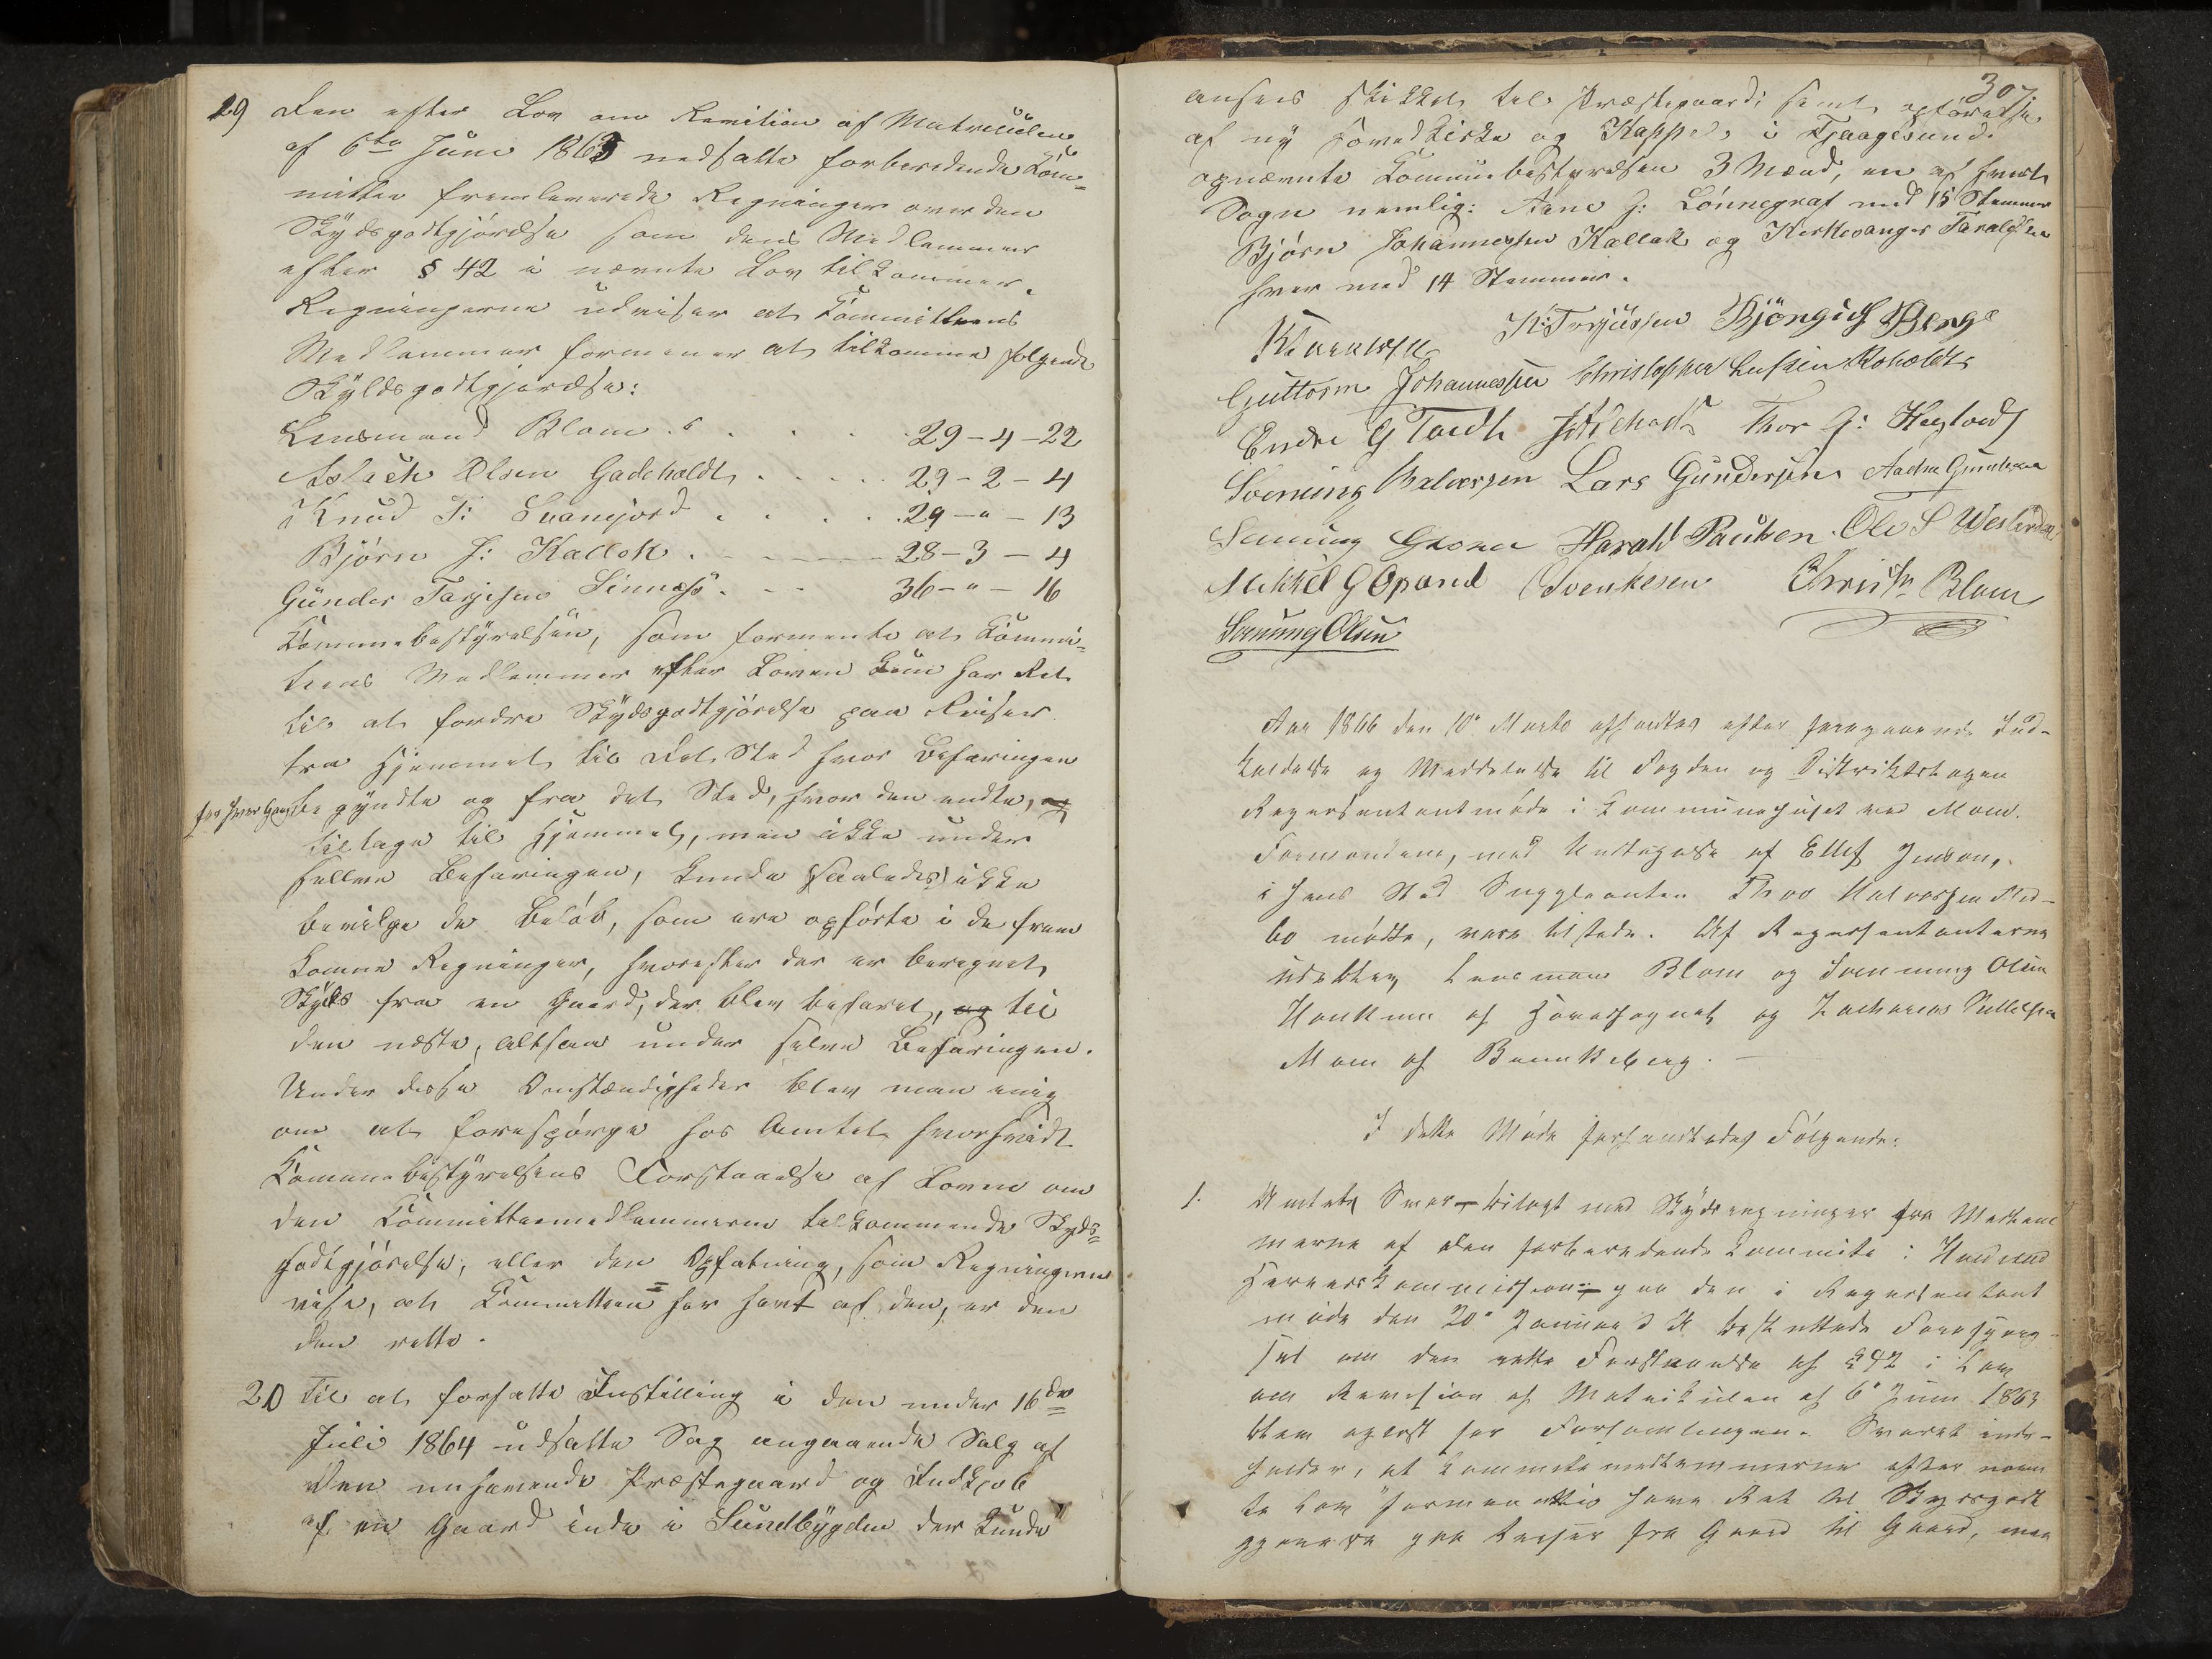 29 Den efter Lov om Revition af Matrikulen
af 6te Juni 1863 nedsatte forberedende Kom=
mittee fremleverede Regninger over den
Skydsgodtgjörelse som dens Medlemmer
efter § 42 i nævnte Lov tilkommer.
Regningerne udviser at Kommitteens
Medlemmer formener at tilkomme følgende
Skyldsgodtgjørelse:
Lensmand Blom . . . . 29-4-22
Aslach Olsen Gadeholdt . . . . . 29-2-4
Knud T: Svanejord . . . . . 29-"-13
Bjørn J: Kallak . . 28-3-4
Gunder Tarjesen Sinnæs . . . 36-"-16
Kommunebestyrelsen, som formente at Kommi=
teens Medlemmer efter Loven kun har Ret
til at fordre Skydsgodtgjörelse paa Reiser
fra Hjemmet til det Sted hvor Befaringen
for hver Gang begyndte og fra det Sted, hvor den endte, og
tilbage til Hjemmet, men ikke under
selve Befaringen, kunde saaledes ikke
bevilge de Beløb, som ere opførte i de frem
komne Regninger, hvorefter der er beregnet
Skyds fra en Gaard, der blev befaret, og til
den næste, altsaa under selve Befaringen.
Under disse Omstændigheder blev man enig
om at forespørge hos Amtet hvorvidt
Kommunebestyrelsens Forstaaelse af Loven om
den Kommitteemedlemmerne tilkommende Skyds=
godtgjörelse, eller den Opfatning, som Regningerne
vise, at Kommitteen har havt af den, er den
den rette.
20 Til at forfatte Indstilling i den under 16de
Juli 1864 udsatte Sag angaaende Salg af
den nuhavende Præstegaard og Indkjøb
af en Gaard inde i Sundbygden der kunde
307
ansees skikket til Præstegaard, samt opførelse
af ny Hovedkirke og Kappel i Kjaagesund.
opnævnte Kommunebestyrelsen 3 Mænd, en af hvert
Sogn nemlig: Aane G: Lönnegraf med 15 Stemmer
Bjørn Johannessen Kallak og Kirkesanger Taraldsen
hver med 14 Stemmer.
K: Terjussen Bjöngulf Berge
Guttorm Johannessen Christopher Roholdt
Endre G Tordh Thor G: Hegland
Svenung Halvorsen Lars Gundersen Aadne Gundersen
Svenung Harald Paulsen. Ole S Westerdal
Mikkel G Opsund O Svenkesen Christn Blom
Svenung Olsen
Aar 1866 den 10de Marts afholdtes efter foregaaende Ind-
kaldelse og Meddelelse til Fogden og Distriktslægen
Repræsentantmøde i Kommunehuset ved Mom.
Formændene, med Undtagelse af Ellef Jensen,
i hans Sted Suppleanten Thor Halvorsen
bo mødte, vare tilstede. Af Repræsentanterne
udeblev Lensmand Blom og Svenning Olsen
Haukum af Hovedsognet og Zacharias Tellefsen
Mom af Bamkeberg. —
I dette Møde forhandledes Følgende:
1. Amtets Svar – bilagt med Skydsregninger fra Medlem
merne af den forberedende Kommite i
Herredskommission – paa den i Repræsentant
møde den 20de Januar d A besluttede Forespørg-
sel om den rette Forstaaelse af § 42 i Lov
om Revision af Matrikulen af 6te Juni 1863
blev oplæst for Forsamlingen. Svaret inde-
holder, at Kommitemedlemmerne efter nævn
te Lov "formentlig have Ret til Skydsgodt
gjørelse paa Reiser fra Gaard til Gaard, men